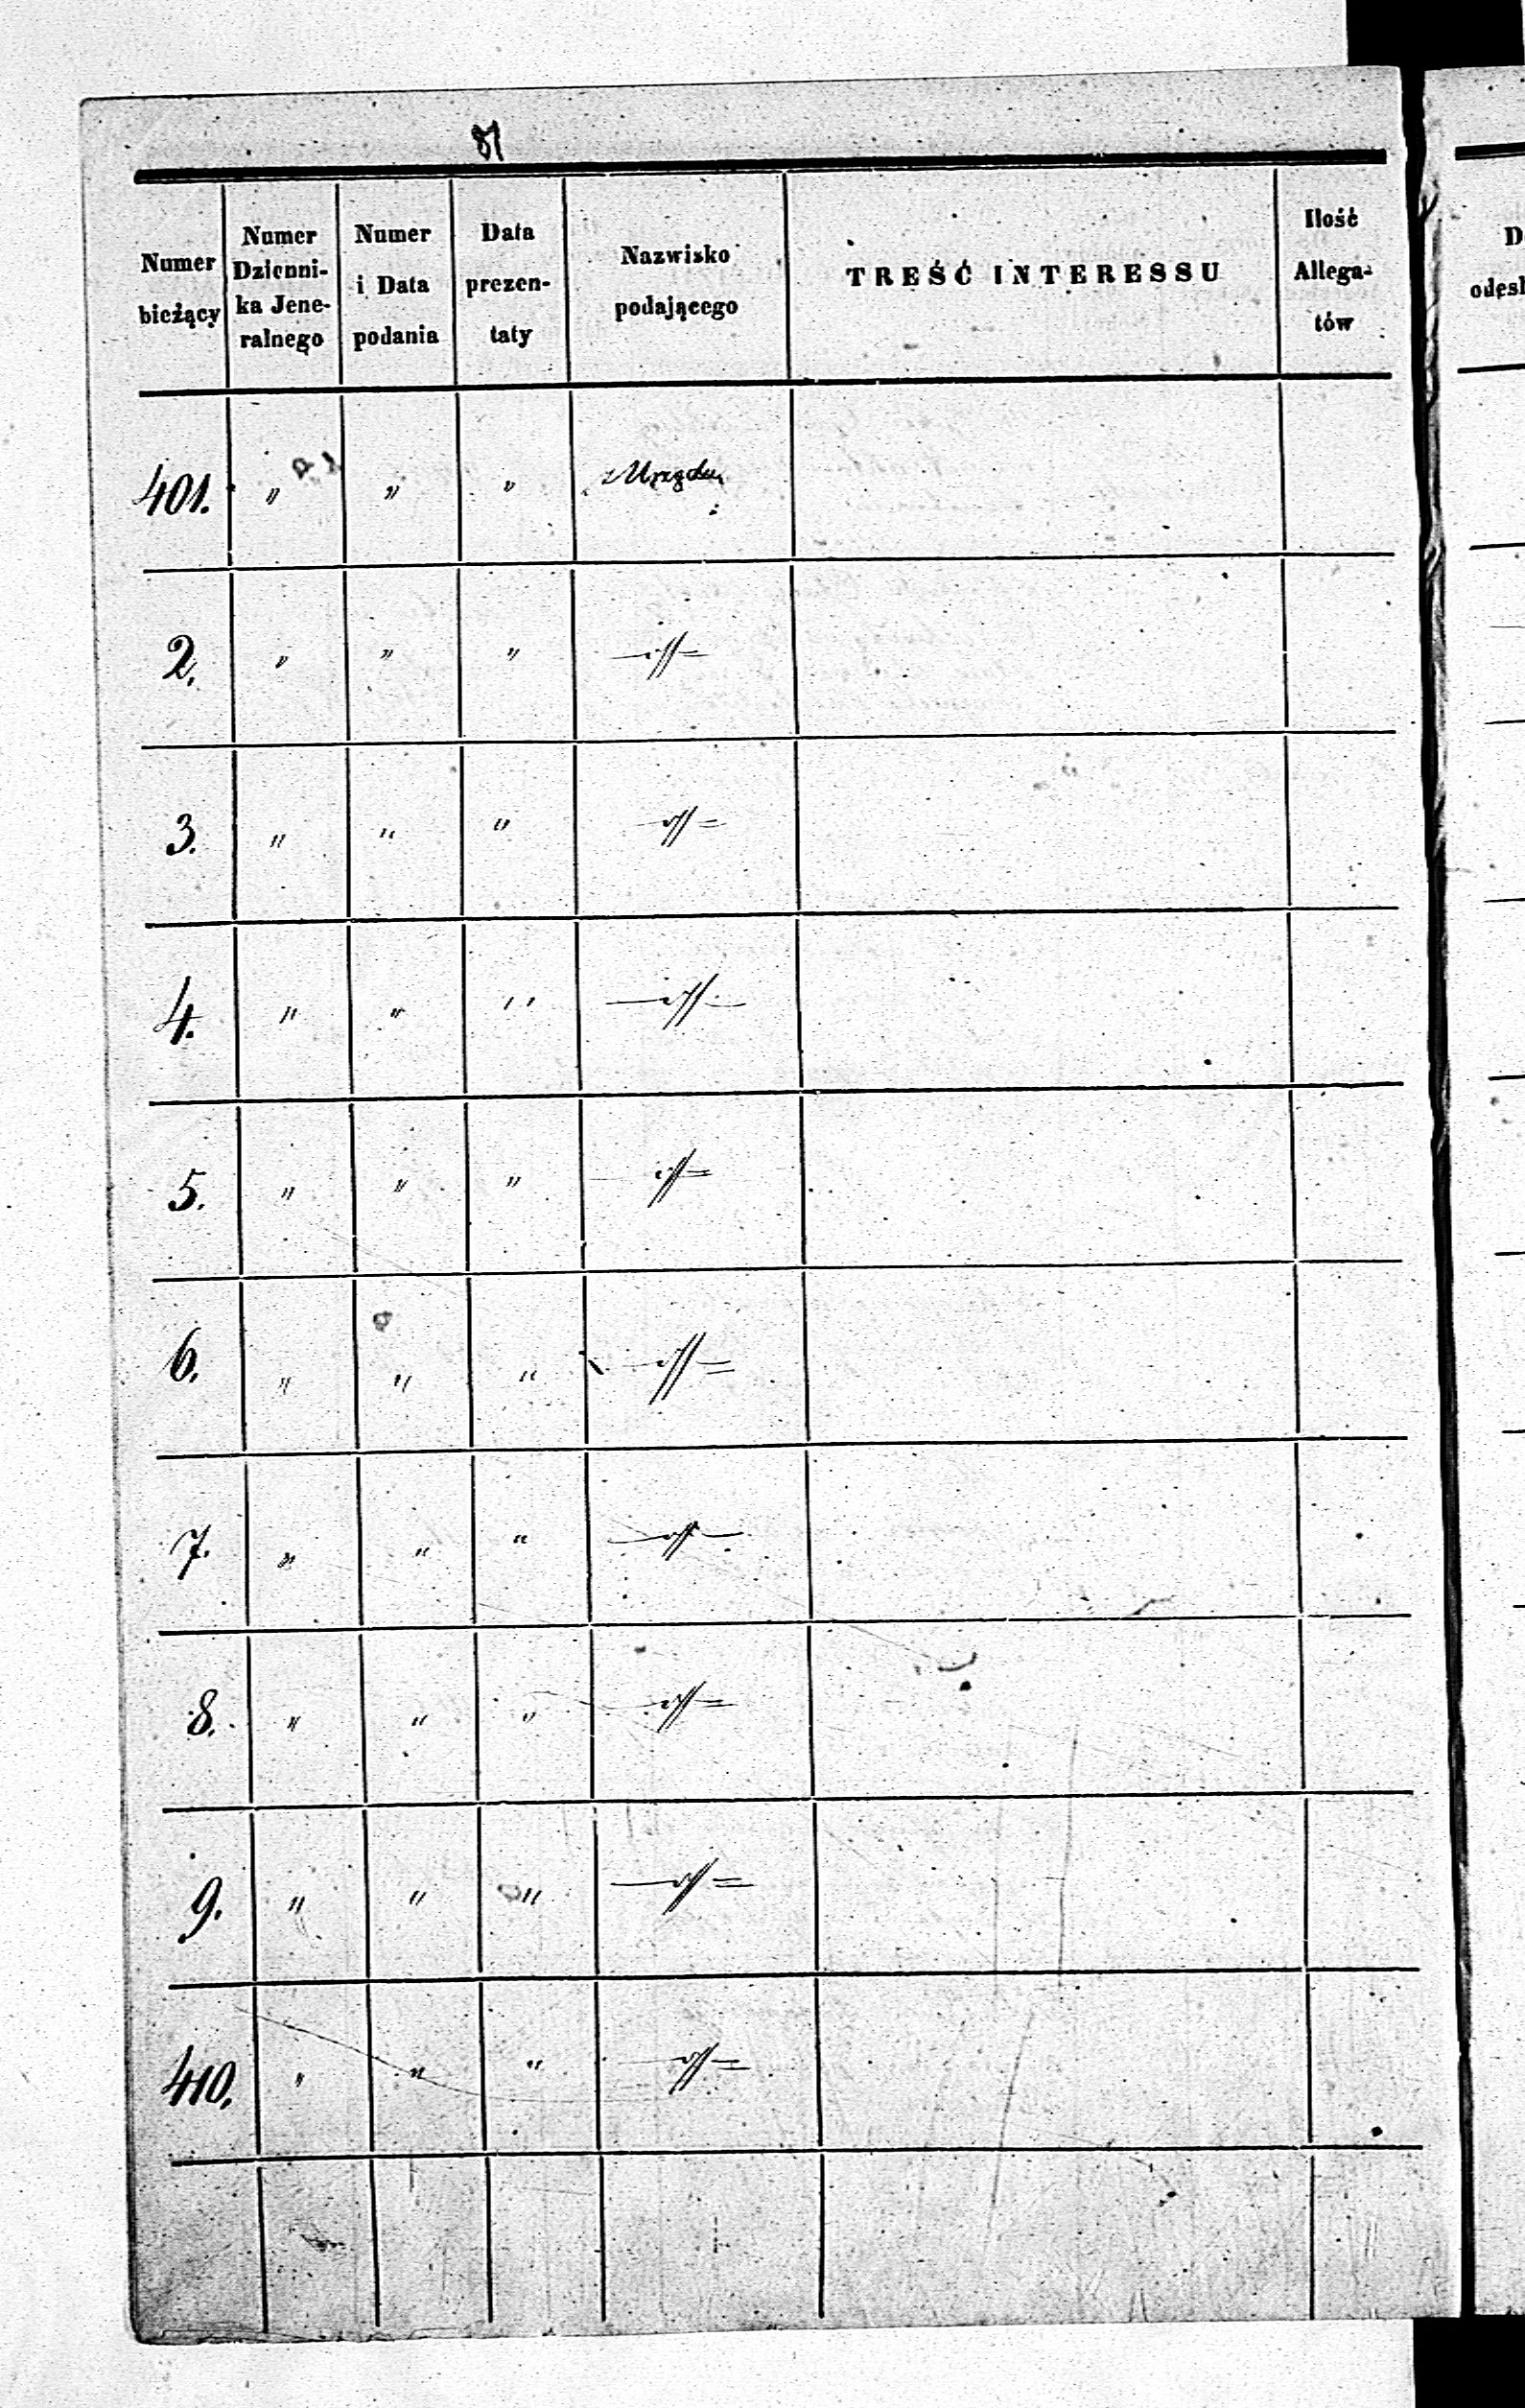 81
Numer bieżący | Numer Dzienni-ka Jene-ralnego | Numer i Data podania | Data prezen-taty | Nazwisko podającego | TREŚĆ INTERESSU | Ilość Allega-tów
401. | „ | „ | „ | z Urzędu
2. | „ | „ | „
3. | „ | „ | „
4. | „ | „ | „
5. | „ | „ | „
6. | „ | „ | „
7. | „ | „ | „
8. | „ | „ | „
9. | „ | „ | „
410. | „ | „ | „